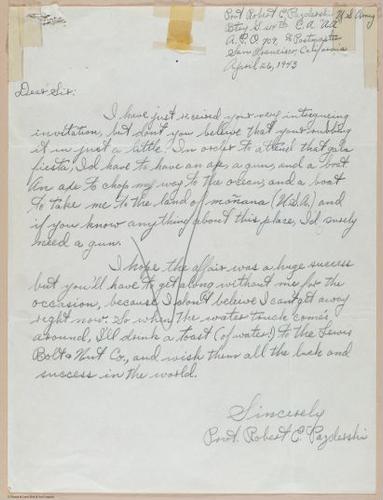 Pvt. Robert C. Pazderski U.S. Army
Btry G 211th C.A. AA
A.P.O. 709, % Postmaster
San Francisco, California
April 26, 1943
Dear Sir:
I have just received your very intriguing
invitation, but don't you believe that your rubbing
it in just a little. In order to attend that gala
fiesta, I'd have to have an ax, a gun, and a boat
An ax to chop my way to the ocean, and a boat
to take me to the land of mañana (U.S.A.) and
if you know anything about this place, I'd surely
need a gun.
I hope the affair was a huge success
but you'll have to get along without me for the
occasion, because I don't believe I can get away
right now. So when the water truck comes
around, I'll drink a toast (of water!) to the Lewis
Bolt & Nut Co., and wish them all the luck and
success in the world.
Sincerely
Pvt. Robert C. Pazderski